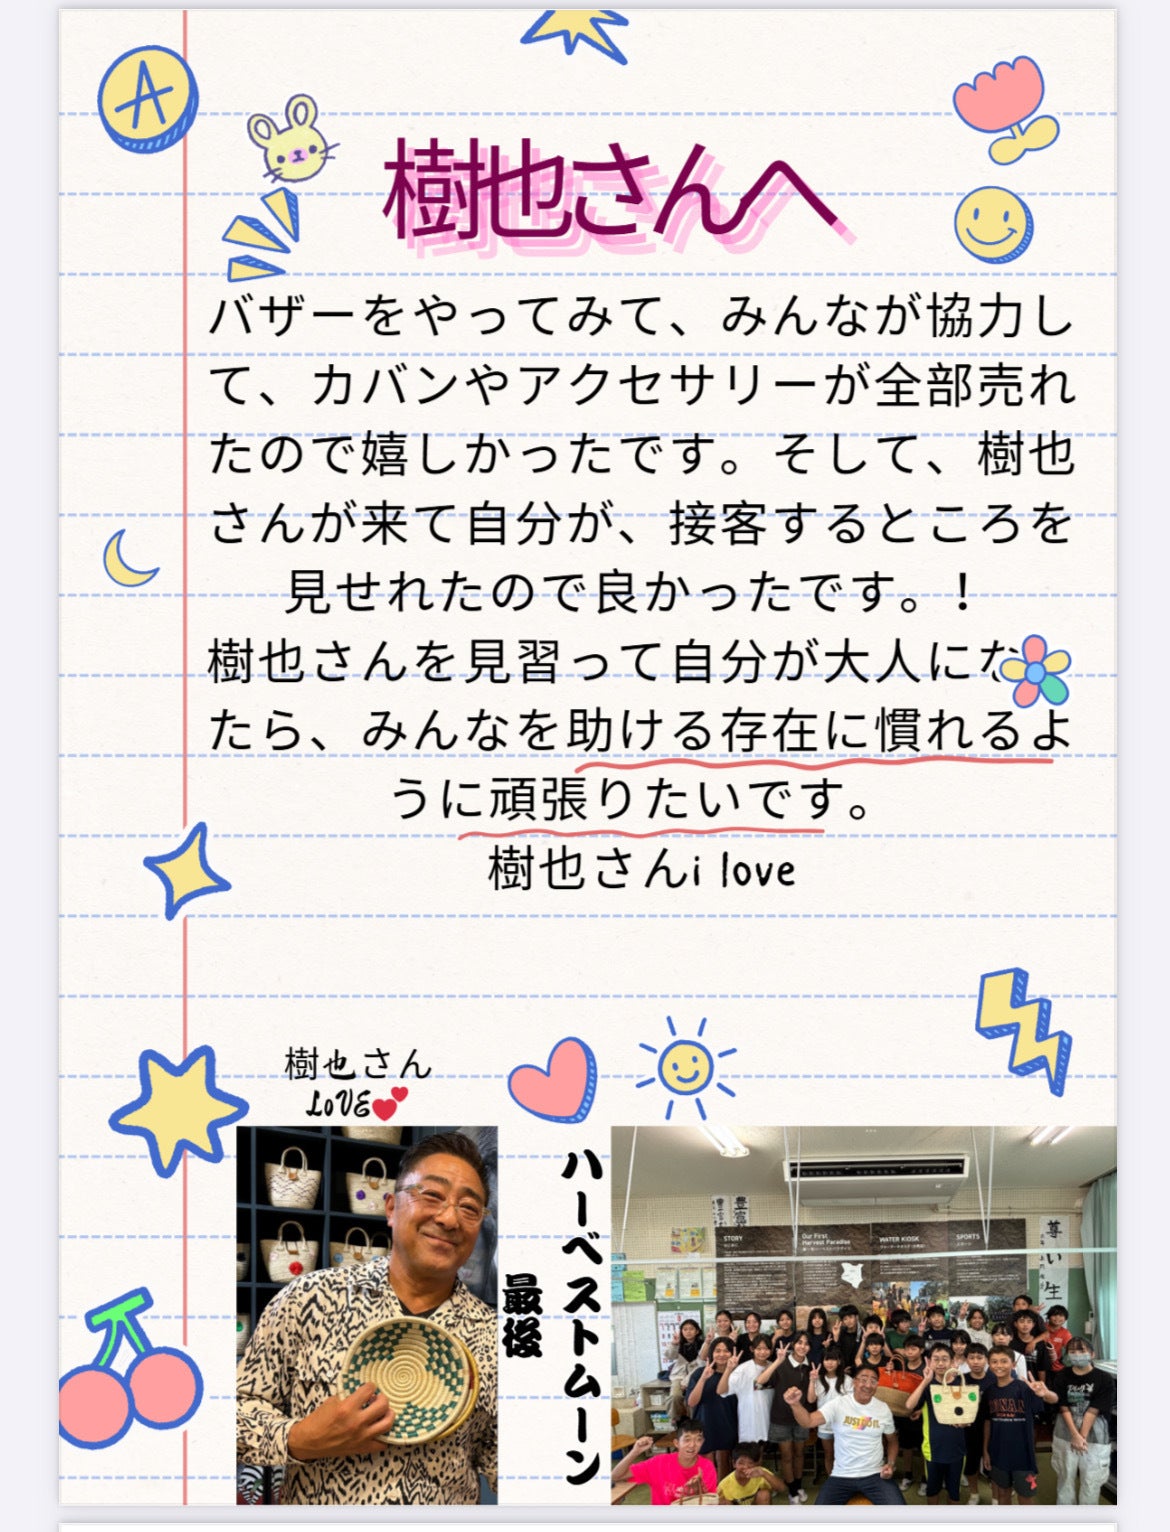 樹也さんへ
バザーをやってみて、みんなが協力し
て、カバンやアクセサリーが全部売れ
たので嬉しかったです。そして、樹也
さんが来て自分が、接客するところを
見せれたので良かったです。！
樹也さんを見習って自分が大人にな
たら、みんなを助ける存在に慣れるよ
うに頑張りたいです。
樹也さんi love
樹也さん
LoVE💕
ハーベストムーン
最後
STORY
Our First
Harvest Paradise
WATER KIOSK
SPORTS
尊い生
JUST DO IT.